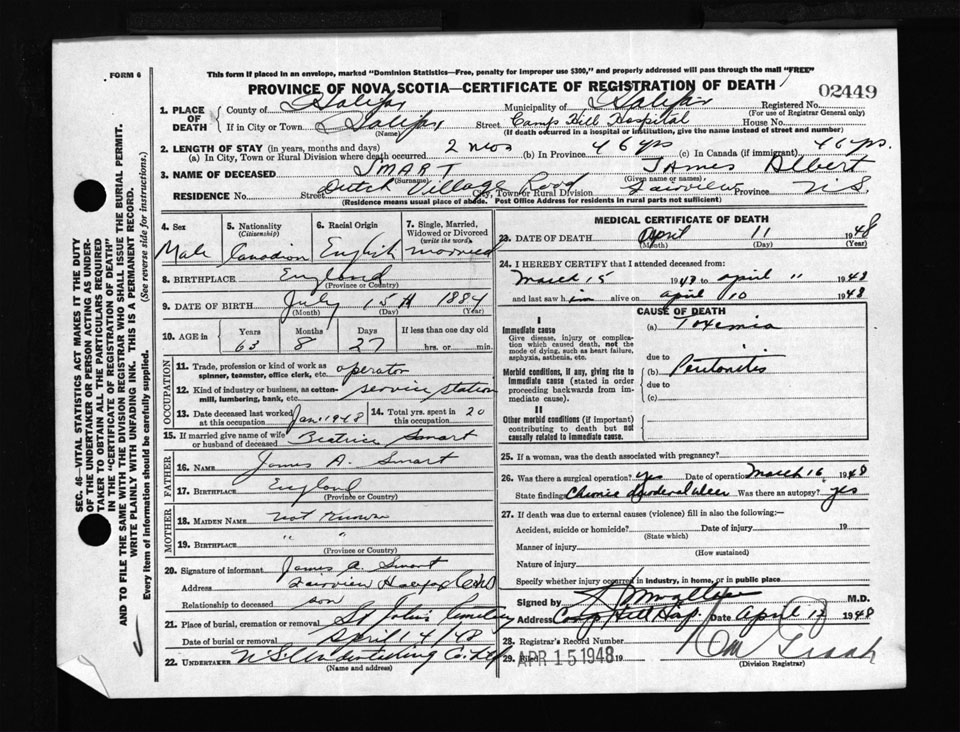 FORM 6
This form if placed in an envelope, marked "Dominion Statistics—Free, penalty for improper use $300," and properly addressed will pass through the mail "FREE"
PROVINCE OF NOVA SCOTIA—CERTIFICATE OF REGISTRATION OF DEATH
02449
1. PLACE OF DEATH County of Halifax Municipality of Halifax Registered No.
(For use of Registrar General only)
If in City or Town Halifax Street Camp Hill Hospital House No.
(Name) (If death occurred in a hospital or institution, give the name instead of street and number)
2. LENGTH OF STAY (in years, months and days)
(a) In City, Town or Rural Division where death occurred 2 mos (b) In Province 46 yrs (c) In Canada (if immigrant) 46 yrs.
3. NAME OF DECEASED SMART James Albert
(Surname) (Given name or names)
RESIDENCE No. Street Dutch Village Road City, Town or Rural Division Fairview Province N.S.
(Residence means usual place of abode. Post Office Address for residents in rural parts not sufficient)
4. Sex Male
5. Nationality (Citizenship) Canadian
6. Racial Origin English
7. Single, Married, Widowed or Divorced (write the word) married
8. BIRTHPLACE England
(Province or Country)
9. DATE OF BIRTH July 15th 1884
(Month) (Day) (Year)
10. AGE in Years 63 Months 8 Days 27 If less than one day old hrs. or min.
OCCUPATION
11. Trade, profession or kind of work as spinner, teamster, office clerk, etc. operator
12. Kind of industry or business, as cotton-mill, lumbering, bank, etc. service station
13. Date deceased last worked at this occupation Jan. 1948 14. Total yrs. spent in 20
15. If married give name of wife or husband of deceased Beatrice Smart
FATHER
16. NAME James A. Smart
17. BIRTHPLACE England
(Province or Country)
MOTHER
18. MAIDEN NAME not known
19. BIRTHPLACE " "
(Province or Country)
20. Signature of informant James A. Smart
Address Fairview Halifax
Relationship to deceased son
21. Place of burial, cremation or removal St John's Cemetery
Date of burial or removal April 14/48
22. UNDERTAKER N.S. Undertaking Co. Ltd
(Name and address)
MEDICAL CERTIFICATE OF DEATH
23. DATE OF DEATH April 11 1948
(Month) (Day) (Year)
24. I HEREBY CERTIFY that I attended deceased from:
March 15 1948 to April 11 1948
and last saw him alive on April 10 1948
CAUSE OF DEATH
I
Immediate cause
Give disease, injury or complication which caused death, not the mode of dying, such as heart failure, asphyxia, asthenia, etc.
(a) Toxemia
due to
Morbid conditions, if any, giving rise to immediate cause (stated in order proceeding backwards from immediate cause).
(b) Peritonitis
due to
(c)
II
Other morbid conditions (if important) contributing to death but not causally related to immediate cause.
25. If a woman, was the death associated with pregnancy?
26. Was there a surgical operation? yes Date of operation March 16 1948
State finding Chronic Duodenal Ulcer Was there an autopsy? yes
27. If death was due to external causes (violence) fill in also the following:—
Accident, suicide or homicide? Date of injury 19
(State which)
Manner of injury
(How sustained)
Nature of injury
Specify whether injury occurred in industry, in home, or in public place
Signed by M.D.
Address Camp Hill Hosp. Date April 12 1948
28. Registrar's Record Number
29. Filed APR 15 1948 19
(Division Registrar)
SEC. 46—VITAL STATISTICS ACT MAKES IT THE DUTY
OF THE UNDERTAKER OR PERSON ACTING AS UNDER-
TAKER TO OBTAIN ALL THE PARTICULARS REQUIRED
IN THE "CERTIFICATE OF REGISTRATION OF DEATH"
AND TO FILE THE SAME WITH THE DIVISION REGISTRAR WHO SHALL ISSUE THE BURIAL PERMIT.
WRITE PLAINLY WITH UNFADING INK. THIS IS A PERMANENT RECORD.
Every item of information should be carefully supplied. (See reverse side for instructions.)